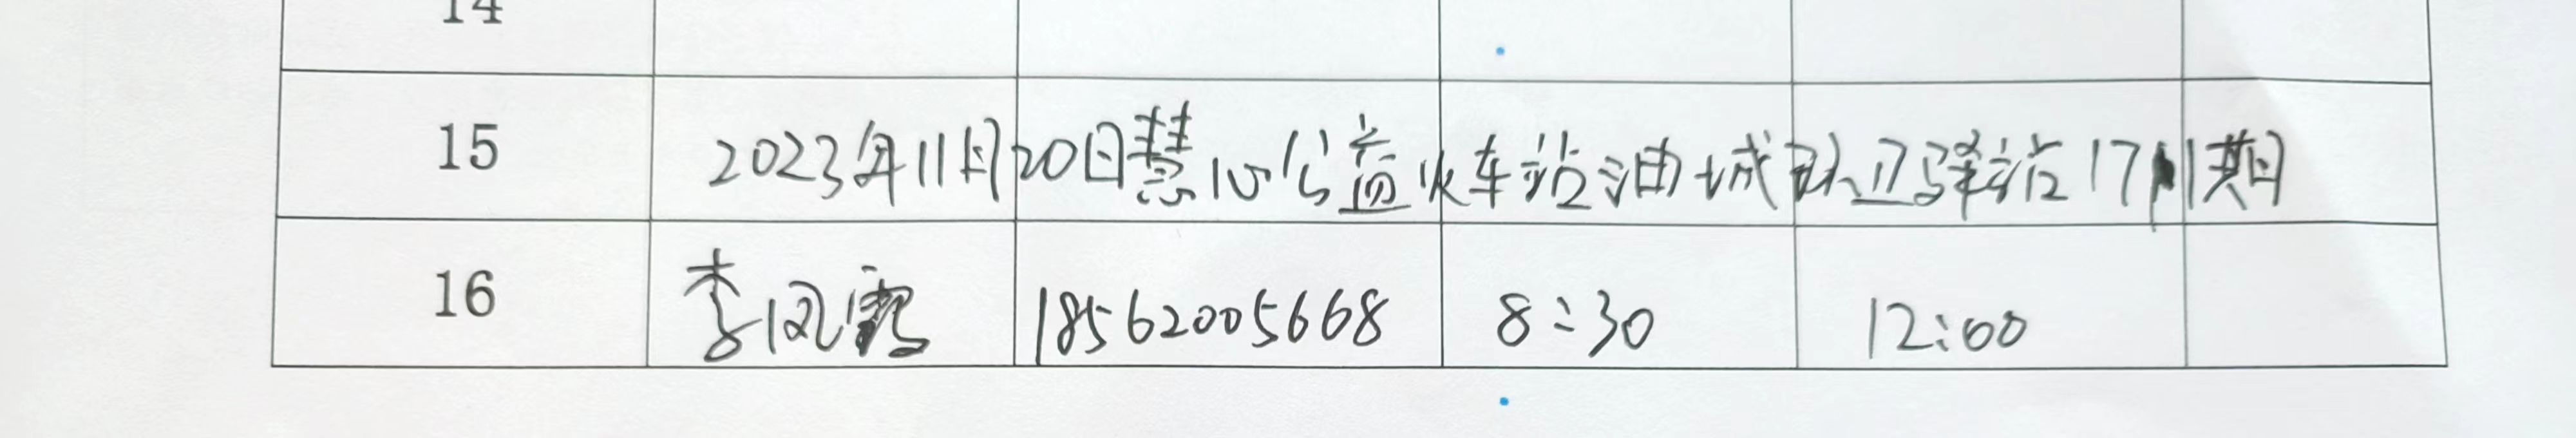 14
15 2023年11月20日慧心公益火车站油城 驿站17 1期
16 李凤 18562005668 8:30 12:00